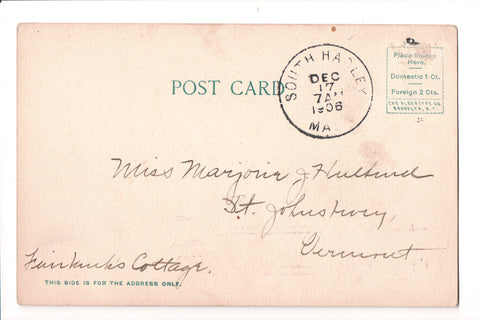 POST CARD
SOUTH HADLEY
DEC
17
7 AM
1906
MA.
Place Stamp
Here.
Domestic 1 Ct.
Foreign 2 Cts.
THE ALBERTYPE CO.
BROOKLYN, N.Y.
Miss Marjorie J.
St. Johnsbury,
Vermont.
Fairbank's Cottage.
THIS SIDE IS FOR THE ADDRESS ONLY.